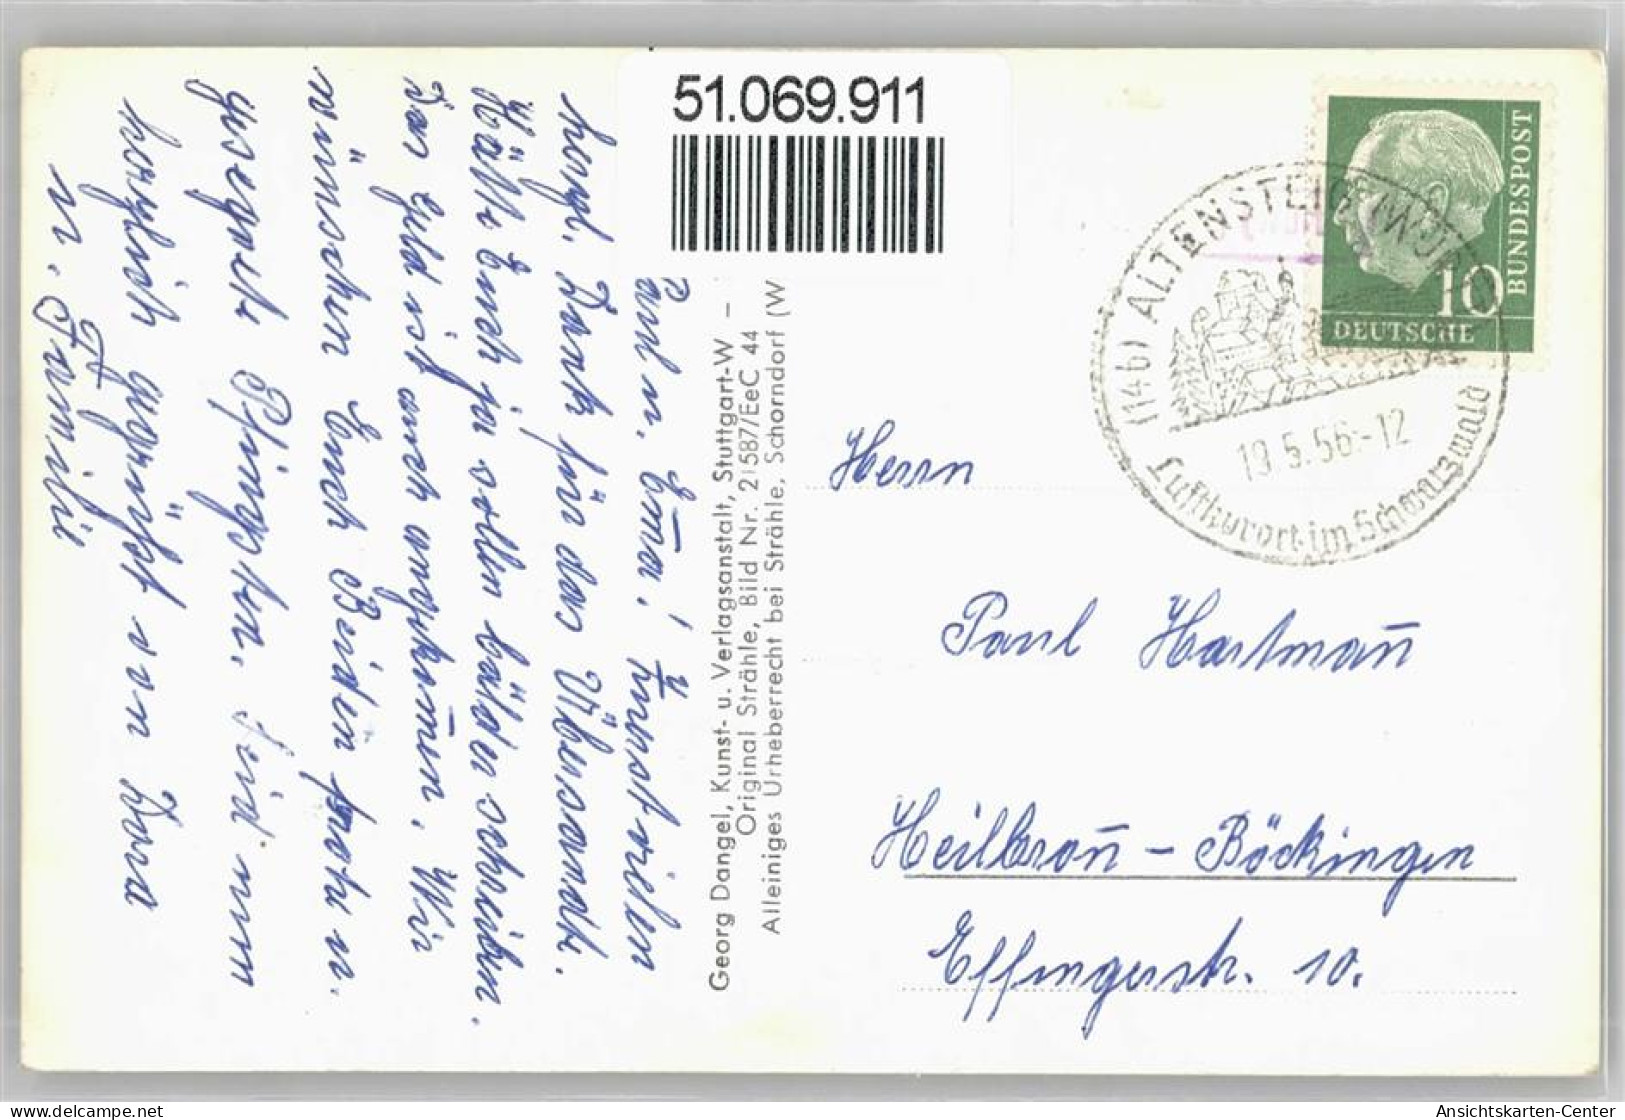 51.069.911
DEUTSCHE
BUNDESPOST
10
(14b) ALTENSTEIG (WÜRTT)
19.5.56.-12
Luftkurort im Schwarzwald
Herrn
Paul Hartmañ
Heilbroñ - Böckingen
Effingerstr. 10.
Georg Dangel, Kunst- u. Verlagsanstalt, Stuttgart-W –
Original Strähle, Bild Nr. 21587/EeC 44
Alleiniges Urheberrecht bei Strähle, Schorndorf (W
Paul u. Em̄a! Zunst vielen
herzl. Dank für das Übersandte.
Hätte Euch ja sollen bälder schreiben.
Das Geld ist auch angekom̄en. Wir
wünschen Euch Beiden frohe u.
gesegnete Pfingsten. Seid nun
herzlich gegrüßt von Dora
u. Familie
Ansichtskarten-Center
delcampe.net